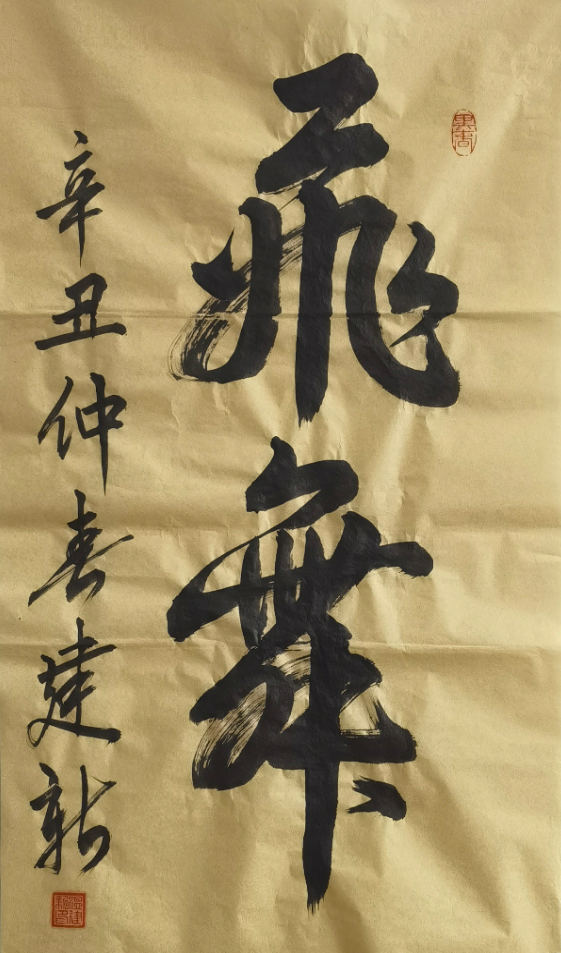 飛舞
辛丑仲春建新